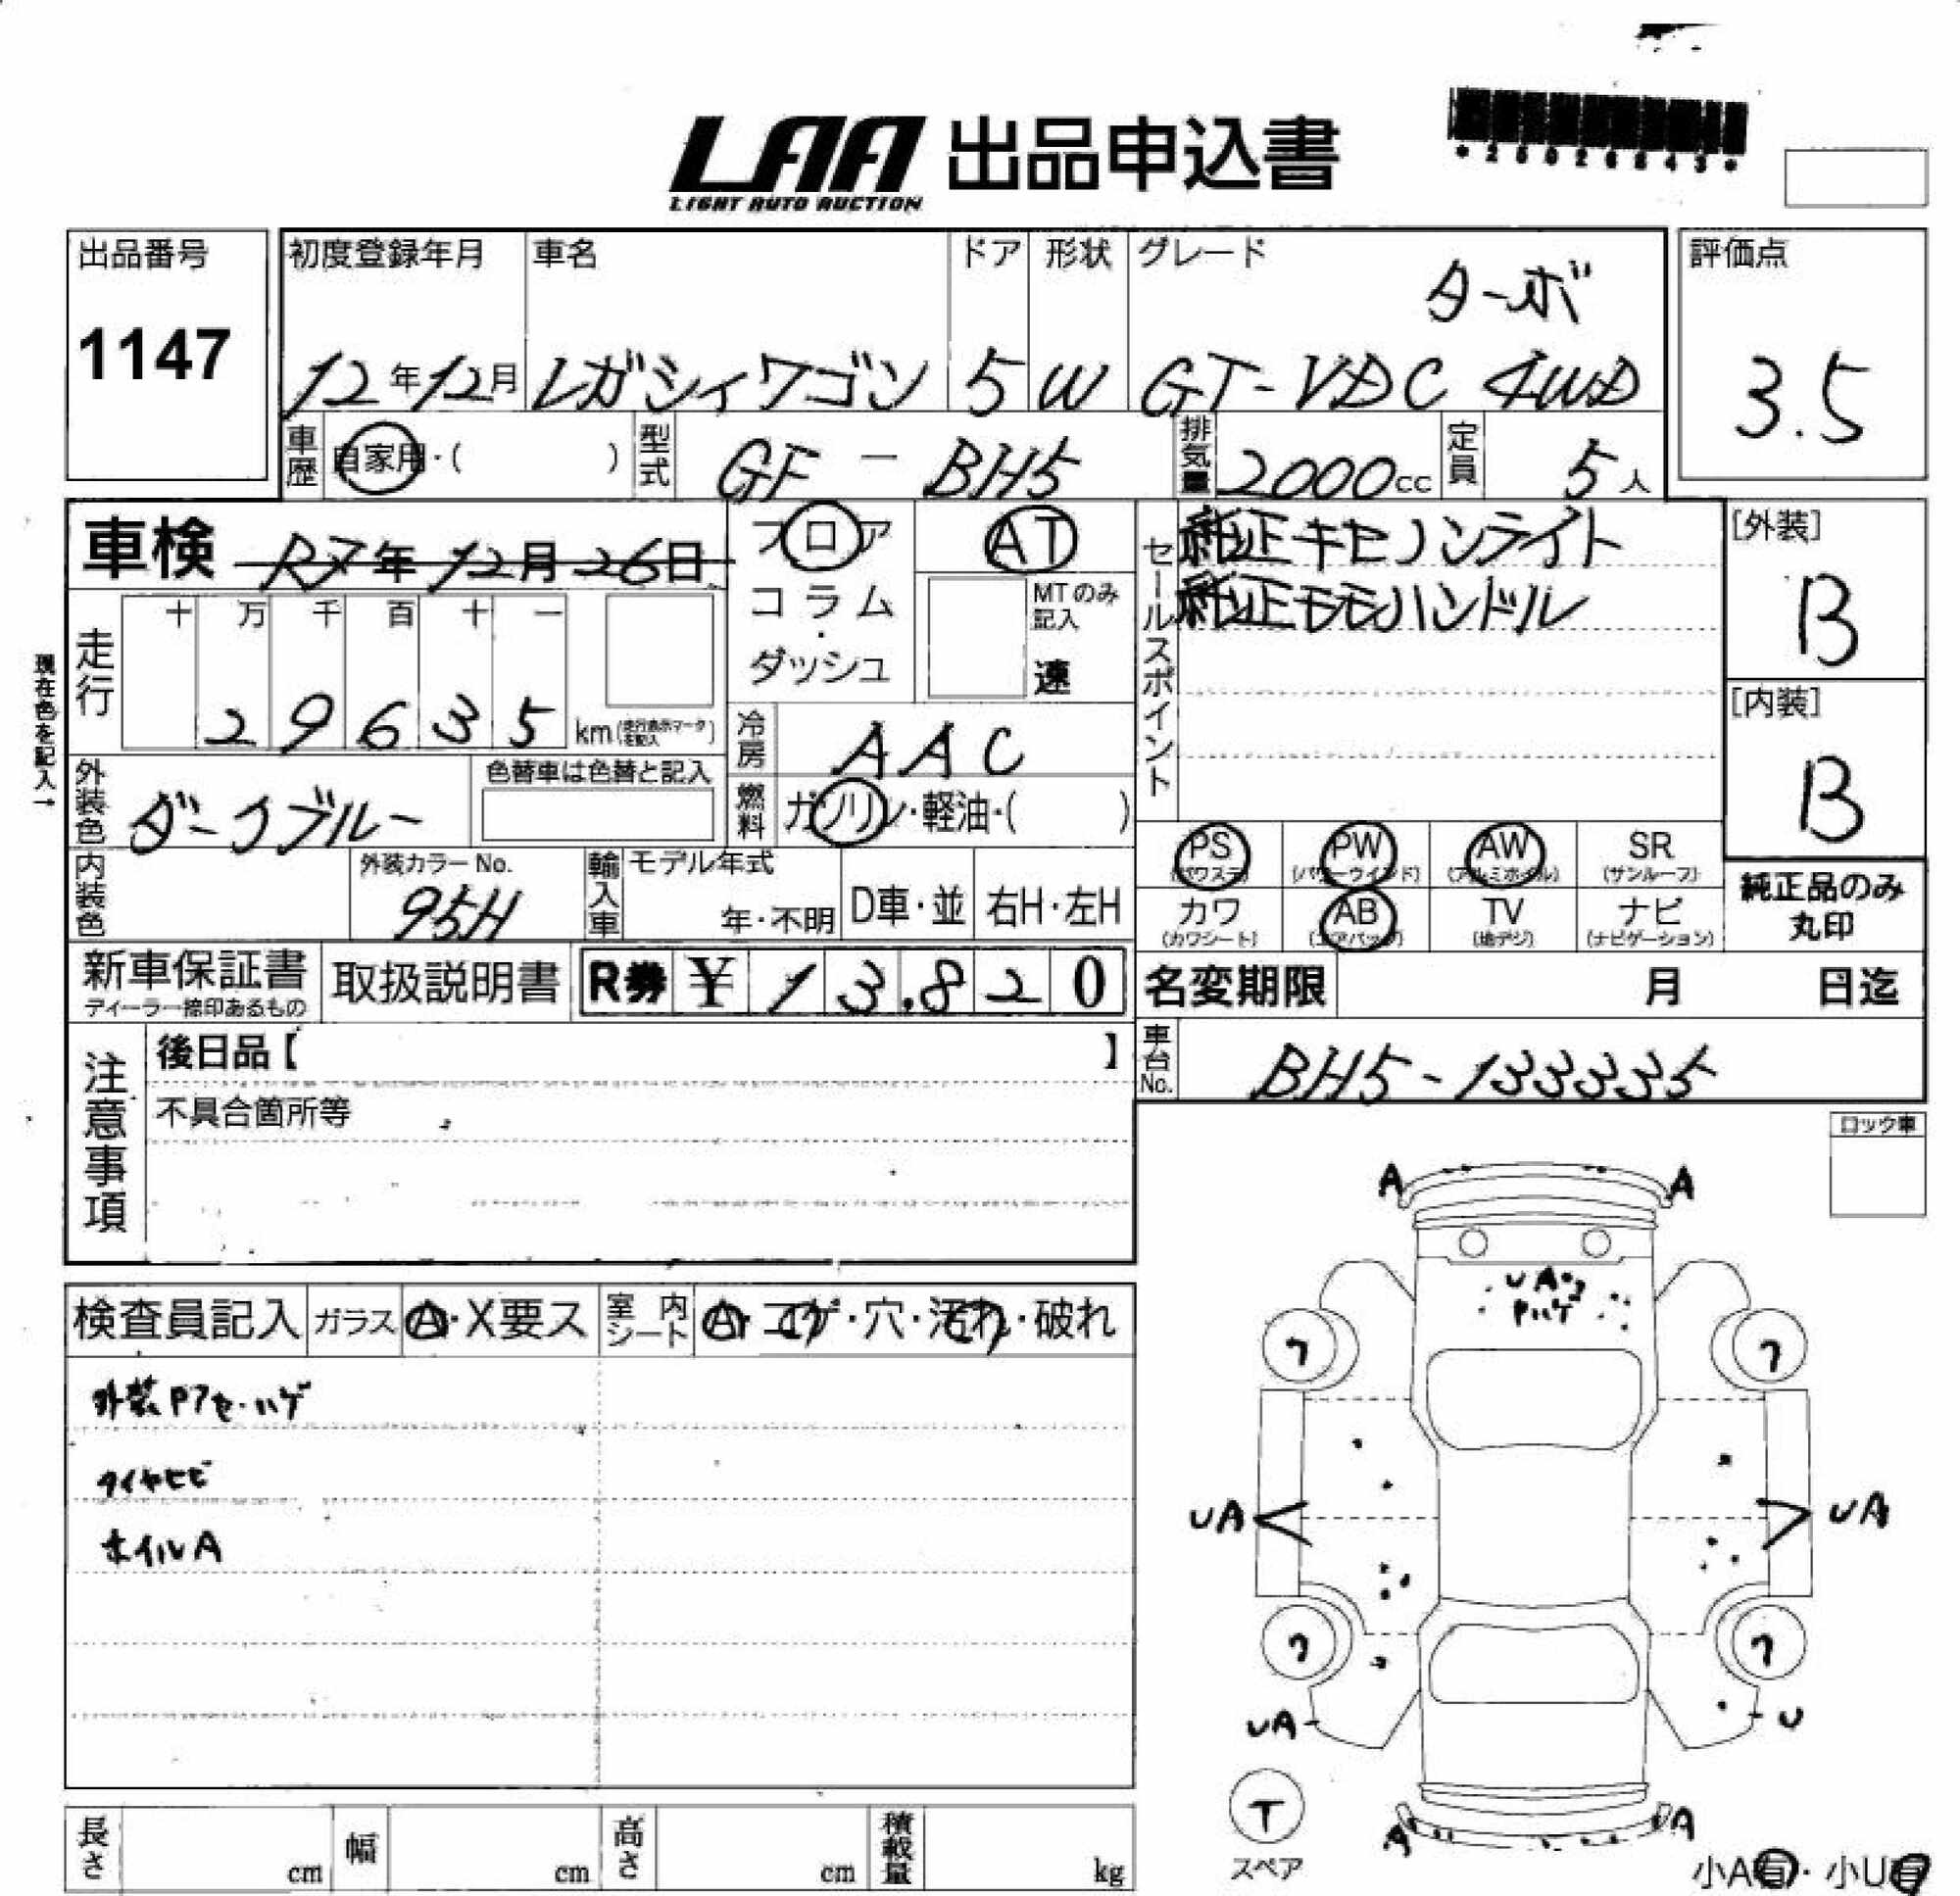 LAA 出品申込書
LIGHT AUTO AUCTION
*25026243*
出品番号
1147
初度登録年月
12年12月
車名
レガシィワゴン
ドア
5
形状
W
グレード
ターボ
GT-VDC 4WD
評価点
3.5
車歴
自家用・( )
型式
GF - BH5
排気量
2000cc
定員
5人
車検 R7年12月26日
フロア
コラム
・
ダッシュ
AT
MTのみ
記入
速
セールスポイント
純正キセノンライト
純正モモハンドル
[外装]
B
[内装]
B
現在色を記入→
走行
十 万 千 百 十 一
2 9 6 3 5 km(走行表示マークを記入)
冷房
AAC
外装色
ダークブルー
色替車は色替と記入
燃料
ガソリン・軽油・( )
内装色
外装カラーNo.
95H
輸入車
モデル年式
年・不明
D車・並
右H・左H
PS
(パワステ)
PW
(パワーウインド)
AW
(アルミホイル)
SR
(サンルーフ)
カワ
(カワシート)
AB
(エアバッグ)
TV
(地デジ)
ナビ
(ナビゲーション)
純正品のみ
丸印
新車保証書
ディーラー捺印あるもの
取扱説明書
R券 ¥ 13,820
名変期限 月 日迄
車台No.
BH5-133335
注意事項
後日品【 】
不具合箇所等
ロック車
検査員記入
ガラス
A・X要ス
室内シート
A・コゲ・穴・汚れ・破れ
外装Pアセ・ハゲ
タイヤヒビ
ホイルA
A A
UA
Pハゲ
ワ ワ
UA UA
ワ ワ
UA U
T
スペア
A A
小A有・小U有
長さ cm
幅 cm
高さ cm
積載量 kg